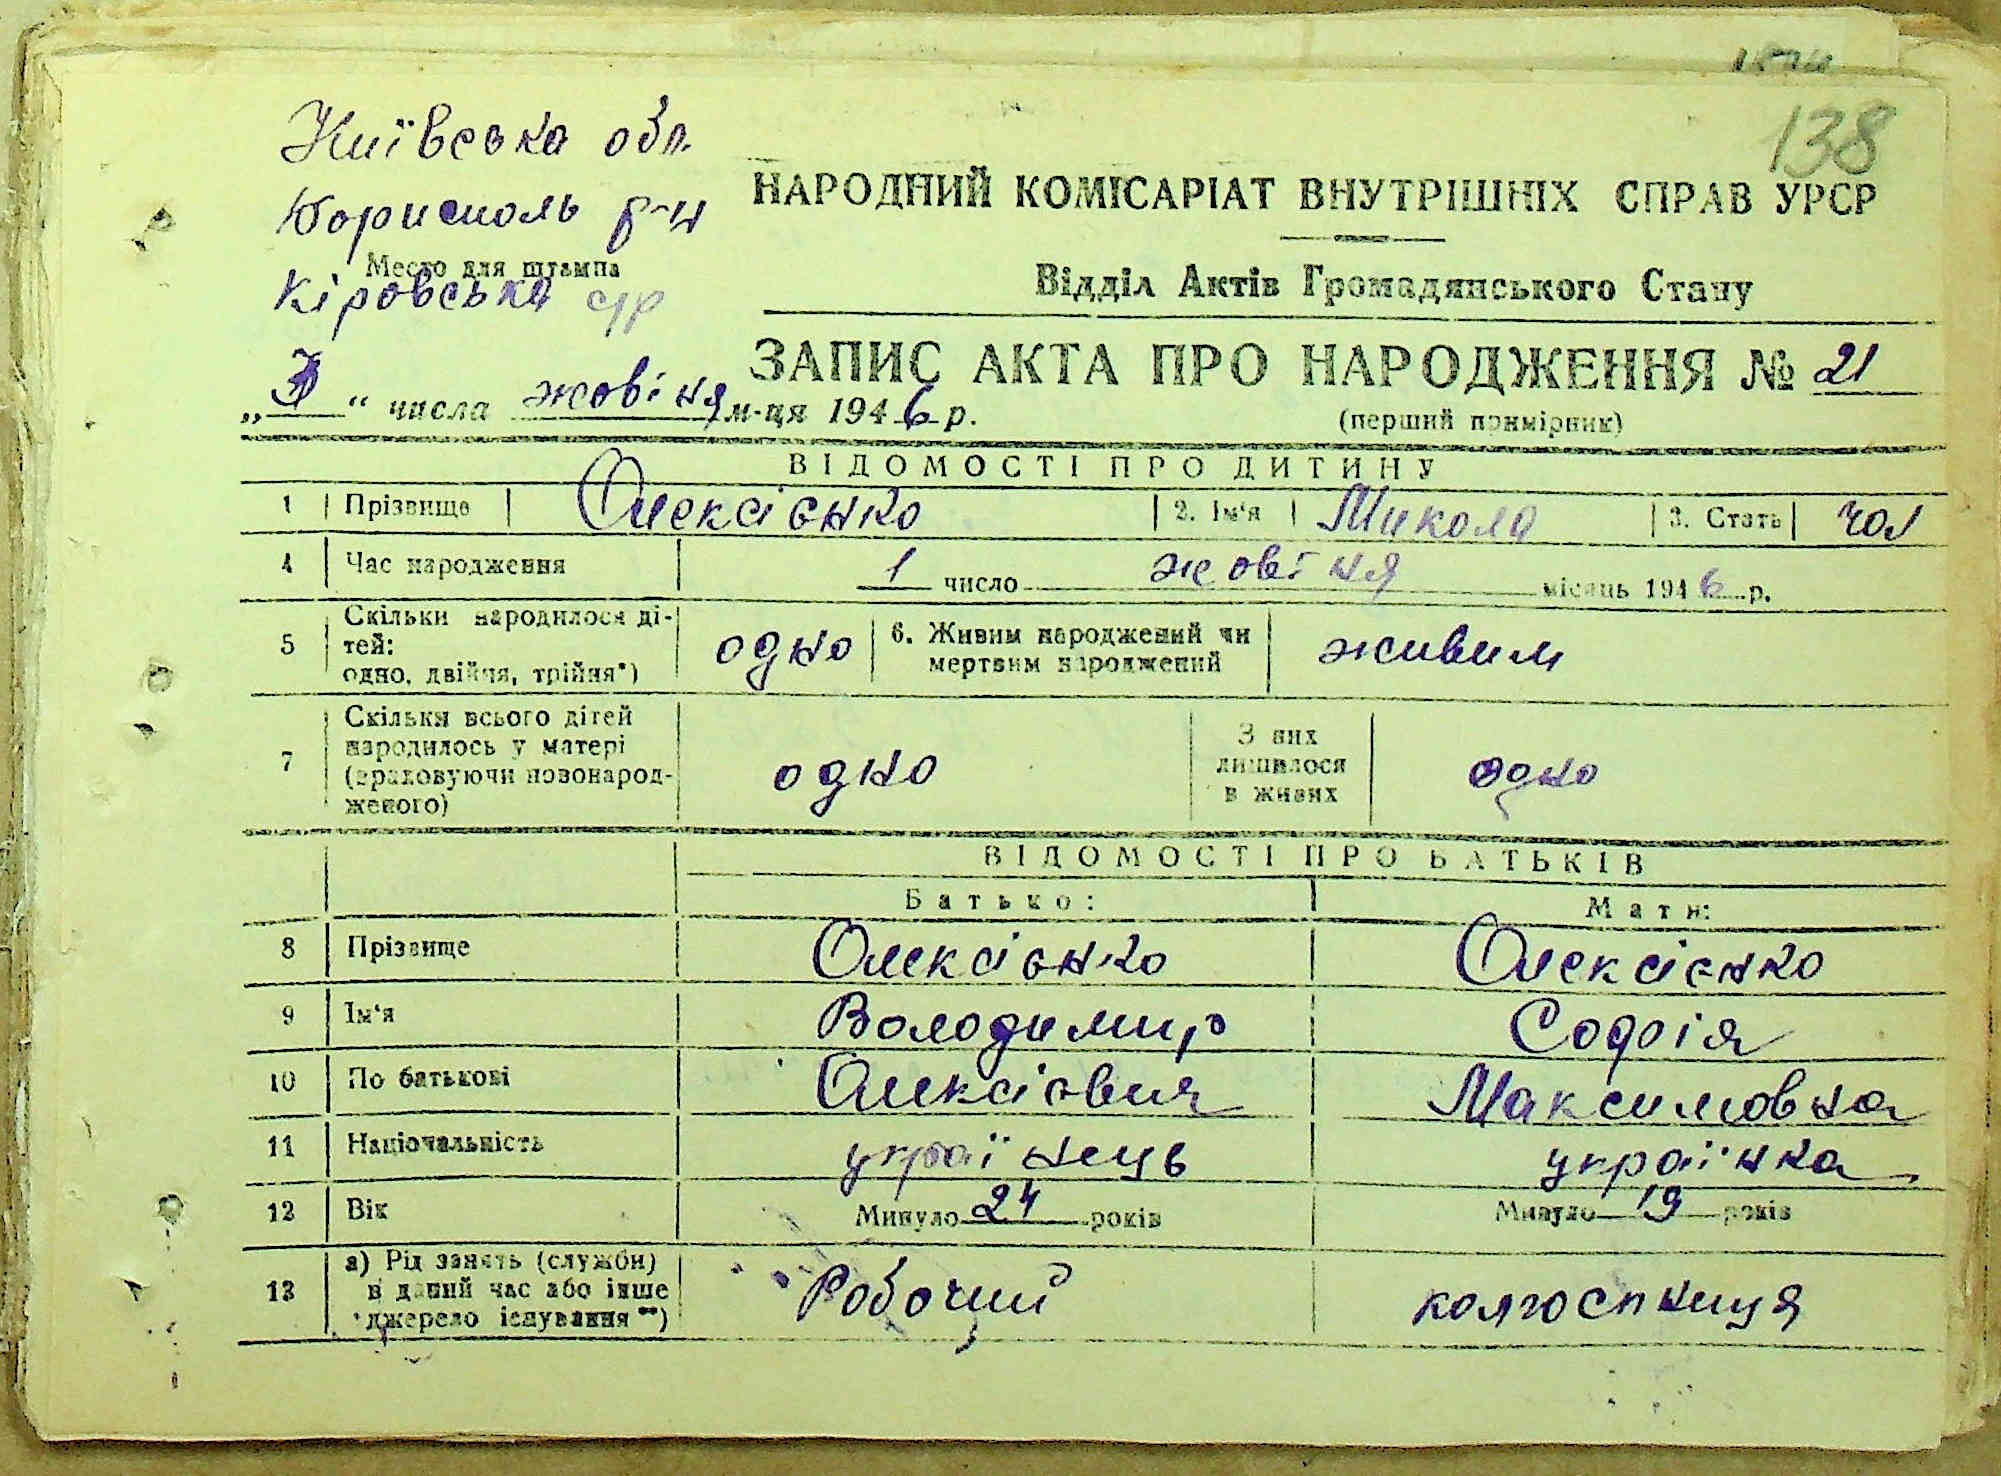 138
Київська обл.
Борисполь р-н
Место для штампа
Кіровська с/р
НАРОДНИЙ КОМІСАРІАТ ВНУТРІШНІХ СПРАВ УРСР
Відділ Актів Громадянського Стану
ЗАПИС АКТА ПРО НАРОДЖЕННЯ № 21
(перший примірник)
„ “ числа жовтня м-ця 1946 р.
ВІДОМОСТІ ПРО ДИТИНУ
1 Прізвище Олексієнко 2. Ім‘я Микола 3. Стать чол
4 Час народження 1 число жовтня місяць 1946 р.
5 Скільки народилося ді-
тей:
одно, двійня, трійня*) одно 6. Живим народжений чи
мертвим народжений живим
7 Скільки всього дітей
народилось у матері
(враховуючи новонарод-
женого) одно З них
лишилося
в живих одно
ВІДОМОСТІ ПРО БАТЬКІВ
Батько: Мати:
8 Прізвище Олексієнко Олексієнко
9 Ім‘я Володимир Софія
10 По батькові Олексієвич Максимовна
11 Національність українець українка
12 Вік Минуло 24 років Минуло 19 років
13 а) Рід занять (служби)
в даний час або інше
джерело існування **) Робочий колгоспниця